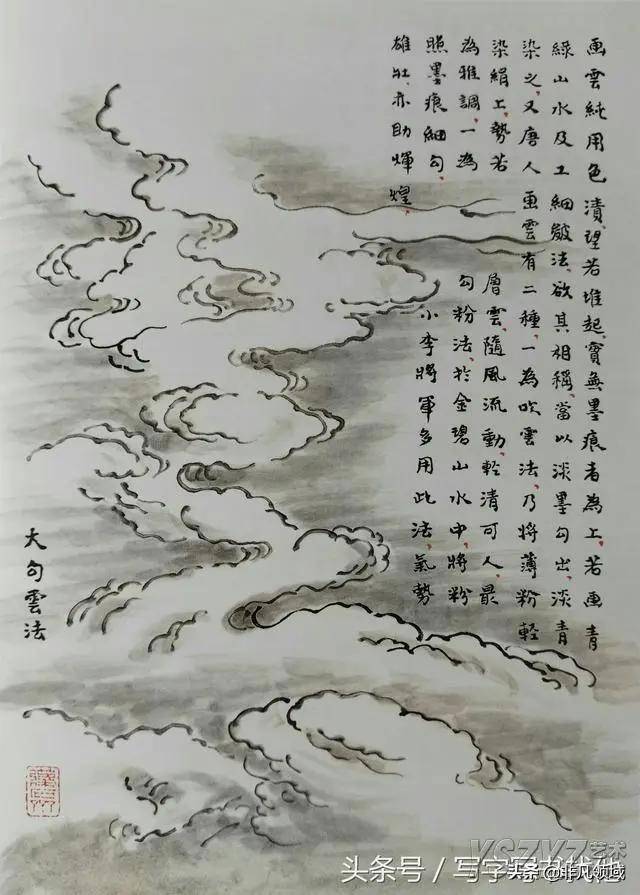 畫雲純用色漬,望若堆起,實無墨痕者為上,若畫青
綠山水及工細皴法,欲其相稱,當以淡墨勾出,淡青
染之,又唐人畫雲有二種,一為吹雲法,乃將薄粉輕
染絹上,勢若層雲隨風流動,輕清可人,最
為雅調,一為勾粉法,於金碧山水中,將粉
照墨痕細勾,小李將軍多用此法,氣勢
雄壯,亦助煇煌,
大勾雲法
VSZYZ艺术
头条号/写字
头条@非凡领域